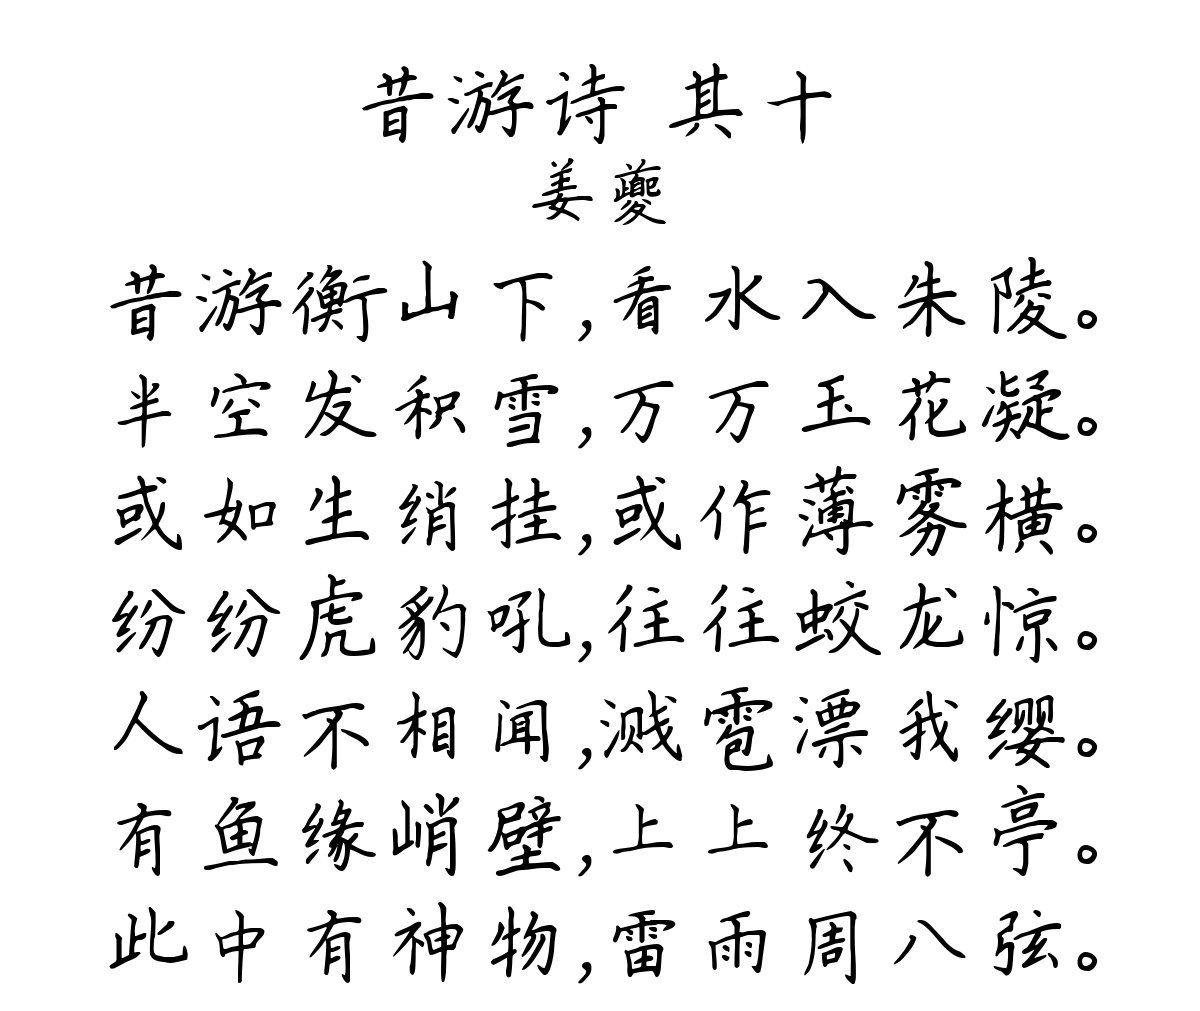 昔游诗 其十
姜夔
昔游衡山下,看水入朱陵。
半空发积雪,万万玉花凝。
或如生绡挂,或作薄雾横。
纷纷虎豹吼,往往蛟龙惊。
人语不相闻,溅雹漂我缨。
有鱼缘峭壁,上上终不亭。
此中有神物,雷雨周八弦。